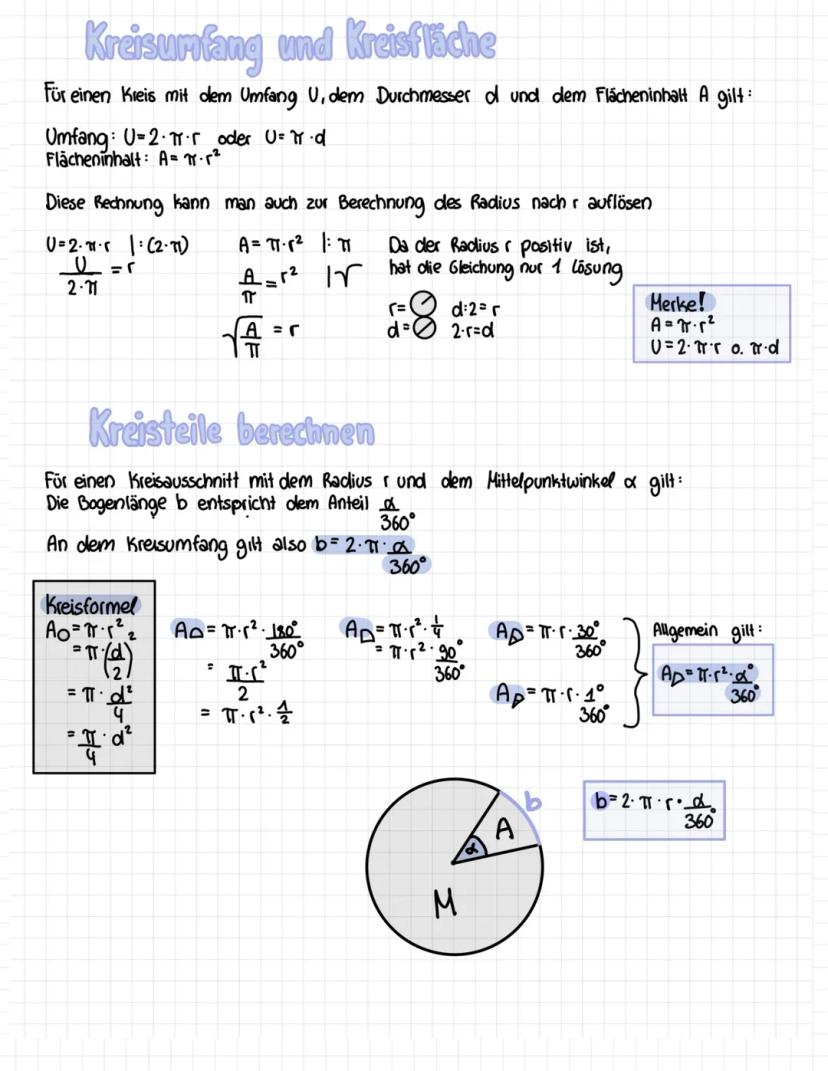 Kreisumfang und Kreisfläche
Für einen Kreis mit dem Umfang U, dem Durchmesser d und dem Flächeninhalt A gilt:
Umfang: U=2·π·r oder U=π·d
Flächeninhalt: A=π·r²
Diese Rechnung kann man auch zur Berechnung des Radius nach r auflösen
U=2·π·r |:(2·π)
U/(2·π) = r
A=π·r² |:π
A/π = r² |√
√(A/π) = r
Da der Radius r positiv ist,
hat die Gleichung nur 1 Lösung
r= d:2=r
d= 2·r=d
Merke!
A=π·r²
U=2·π·r o. π·d
Kreisteile berechnen
Für einen Kreisausschnitt mit dem Radius r und dem Mittelpunktwinkel α gilt:
Die Bogenlänge b entspricht dem Anteil α/360°
An dem Kreisumfang gilt also b=2·π·α/360°
Kreisformel
A○=π·r²
=π·(d/2)²
=π·d²/4
=π/4·d²
A=π·r²·180°/360°
=π·r²/2
=π·r²·1/2
A=π·r²·1/4
=π·r²·90°/360°
A=π·r·30°/360°
A=π·r·1°/360°
Allgemein gilt:
A=π·r²·α°/360°
b
A
α
M
b=2·π·r·α°/360°